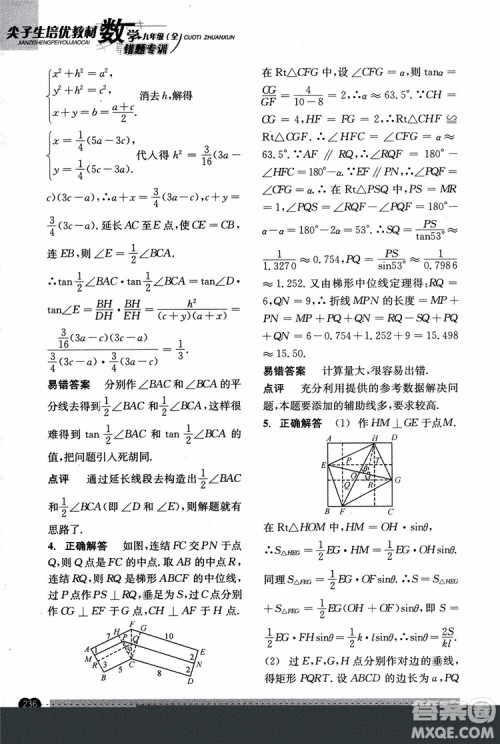 尖子生培优教材 数学 九年级(全) CUOTI ZHUANXUN
JIANZISHENGPEIYOUJIAOCAI 错题专训
x²+h²=a²,
y²+h²=c², 消去h,解得
x+y=(a+c)/2
x=1/4(5a-3c),
代入得h²=3/16(3a-
y=1/4(5c-3a).
c)(3c-a);∴a+x=3/4(3a-c),c+y=
3/4(3c-a). 延长AC至E点,使CE=CB,
连BE,则∠E=1/2∠BCA.
∴tan1/2∠BAC·tan1/2∠BCA=tan∠D·
tan∠E=BH/DH·BH/EH=h²/((c+y)(a+x))=
(3/16(3a-c)(3c-a))/(3/4(3c-a)·3/4(3a-c))=1/3.
易错答案 分别作∠BAC和∠BCA的平
分线去得到1/2∠BAC和1/2∠BCA,这样很
难得到tan1/2∠BAC和tan1/2∠BCA的
值,把问题引入死胡同.
点评 通过延长线段去构造出1/2∠BAC
和1/2∠BCA(即∠D和∠E),则解题就有
思路了.
4. 正确解答 如图,连结FC交PN于点
Q,则Q点是FC的中点. 取AB的中点R,
连结RQ,则RQ是梯形ABCF的中位线,
过P点作PS⊥RQ,垂足为S,过C点分别
作CG⊥EF于G点,CH⊥AF于H点.
在Rt△CFG中,设∠CFG=α,则tanα=
CG/GF=4/(10-8)=2,∴α≈63.5°. ∵CH=
CG=4,HF=FG=2. ∴Rt△CHF≌
Rt△CGF. ∴∠HFC=∠CFG=α=
63.5°. ∵AF∥RQ,∴∠FQR=180°-
∠HFC=180°-α. ∵EF∥PN,∴∠FQP=
∠CFG=α. ∴在Rt△PSQ中,PS=MR
=1,∠PQS=∠FQR-∠FQP=180°-
α-α=180°-2α=53°. ∴SQ=PS/tan53°≈
1/1.3270≈0.754,PQ=PS/sin53°≈1/0.7986
≈1.252. 又由梯形中位线定理得:RQ=
6,QN=9;∴折线MPN的长度=MP+
PN=MP+PQ+QN=RQ-SQ+PQ+
QN≈6-0.754+1.252+9=15.498
≈15.50.
易错答案 计算量大,很容易出错.
点评 充分利用提供的参考数据解决问
题,本题要添加的辅助线多,要求较高.
5. 正确解答 (1) 作HM⊥GE于点M.
在Rt△HOM中,HM=OH·sinθ,
∴S△HEG=1/2EG·HM=1/2EG·OHsinθ,
同理S△FEG=1/2EG·OFsinθ,即S=
1/2EG·FHsinθ=1/2k·lsinθ,∴sinθ=2S/kl.
(2) 过E,F,G,H点分别作对边的垂线,
得矩形PQRT. 设ABCD的边长为a,PQ
236